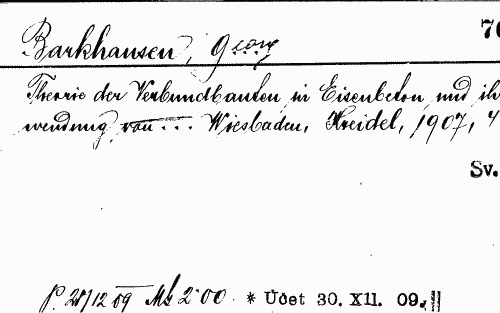 Barkhausen, Georg 70
Theorie der Verbundbauten in Eisenbeton und ihr
wendung von ... Wiesbaden, Kreidel, 1907, 4
Sv.
28/12 09 Mk 2·00 * Udet 30. XII. 09.